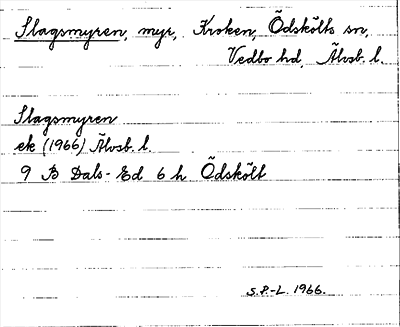 Slagsmyren, myr, Kroken, Ödskölts sn,
Vedbo hd, Älvsb. l.
Slagsmyren
ek (1966) Älvsb. l.
9 B Dals-Ed 6 h Ödskölt
S.P.-L. 1966.